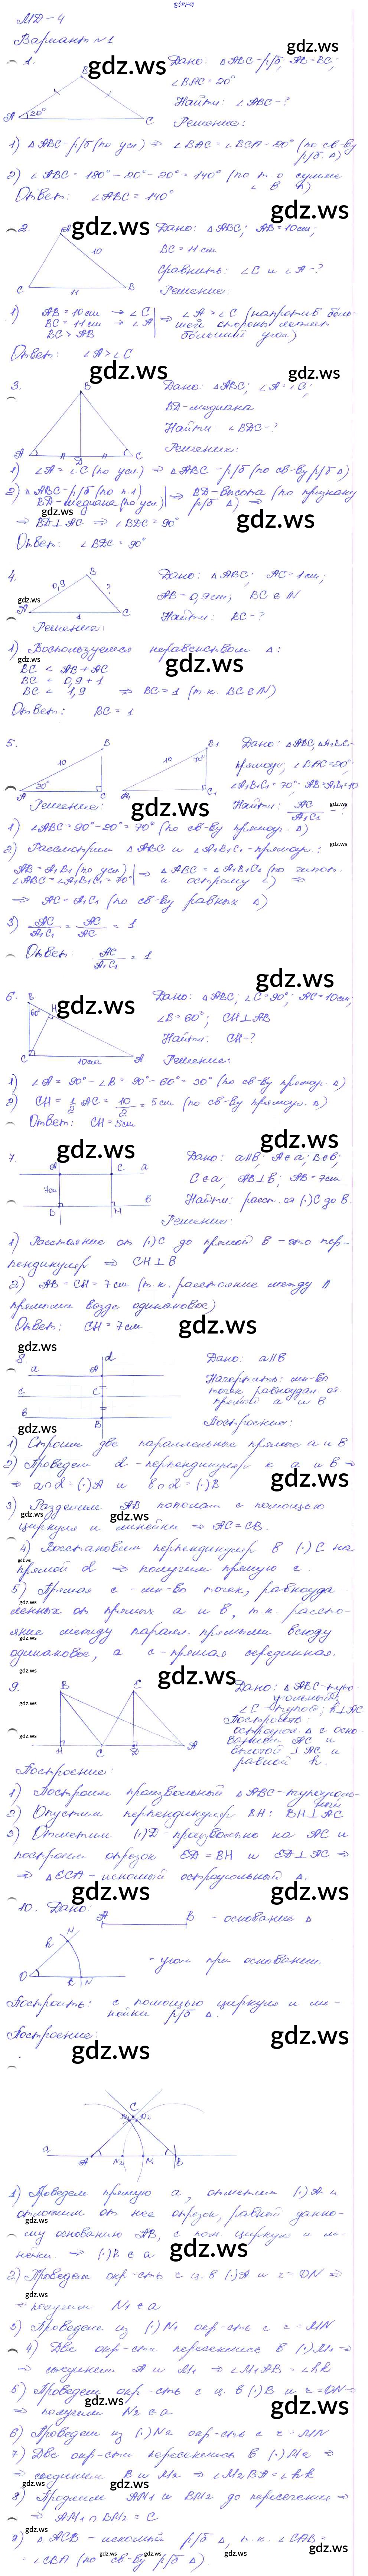 gdz.ws
МД-4
Вариант №1
1.
Дано: △ABC-р/б, AB=BC,
∠BAC=20°
Найти: ∠ABC-?
Решение:
1) △ABC-р/б (по усл) ⇒ ∠BAC=∠BCA=20° (по св-ву р/б. △)
2) ∠ABC = 180°-20°-20° = 140° (по т. о сумме
Ответ: ∠ABC = 140°
2
Дано: △ABC; AB=10см;
BC=11см
Сравнить: ∠C и ∠A-?
Решение:
1) AB=10см → ∠C
BC=11см → ∠A
BC > AB
⇒ ∠A > ∠C (напротив большей стороны лежит больший угол)
Ответ: ∠A > ∠C
3.
Дано: △ABC; ∠A=∠C;
BD-медиана
Найти: ∠BDC-?
Решение:
1) ∠A=∠C (по усл.) ⇒ △ABC-р/б (по св-ву р/б △)
2) △ABC-р/б (по п.1)
BD-медиана (по усл)
⇒ BD-высота (по признаку р/б △) ⇒
⇒ BD⊥AC ⇒ ∠BDC = 90°
Ответ: ∠BDC = 90°
4.
Дано: △ABC; AC=1см;
AB=0,9см; BC∈N
Найти: BC-?
Решение:
1) Воспользуемся неравенством △:
BC < AB + AC
BC < 0,9 + 1
BC < 1,9 ⇒ BC=1 (т.к. BC∈N)
Ответ: BC = 1
5.
Дано: △ABC, △A₁B₁C₁-
прямоуг., ∠BAC=20°,
∠A₁B₁C₁=70° AB=A₁B₁=10
Найти: AC/A₁C₁-?
Решение:
1) ∠ABC=90°-20°=70° (по св-ву прямоуг. △)
2) Рассмотрим △ABC и △A₁B₁C₁-прямоуг.:
AB=A₁B₁ (по усл)
∠ABC=∠A₁B₁C₁=70°
⇒ △ABC = △A₁B₁C₁ (по гипот. и острому ∠) ⇒
⇒ AC=A₁C₁ (по св-ву равных △)
3) AC/A₁C₁ = AC/AC = 1
Ответ: AC/A₁C₁ = 1
6.
Дано: △ABC; ∠C=90°; AC=10см;
∠B=60°; CH⊥AB
Найти: CH-?
Решение:
1) ∠A = 90°-∠B = 90°-60° = 30° (по св-ву прямоуг. △)
2) CH = 1/2 AC = 10/2 = 5см (по св-ву прямоуг. △)
Ответ: CH=5см
7.
Дано: a∥b; A∈a; B∈b;
C∈a; AB⊥b; AB=7см
Найти: расст. от (·)C до b.
Решение:
1) Расстояние от (·)C до прямой b - это пер-
пендикуляр ⇒ CH⊥b
2) AB=CH=7см (т.к. расстояние между ∥
прямыми везде одинаковое)
Ответ: CH=7см
8
Дано: a∥b
Начертить: мн-во
точек равноудал от
прямой a и b
Построение:
1) Строим две параллельные прямые a и b
2) Проведем d-перпендикуляр к a и b ⇒
⇒ a∩d=(·)A и b∩d=(·)B
3) Разделим AB пополам с помощью
циркуля и линейки ⇒ AC=CB.
4) Восстановим перпендикуляр в (·)C на
прямой d ⇒ получим прямую c.
5) Прямая c-мн-во точек, равноуда-
ленных от прямых a и b, т.к. рассто-
яние между паралл. прямыми всюду
одинаковое, а c-прямая серединная.
9.
Дано: △ABC-тупо-
угольный,
∠C-тупой; h⊥AC
Построить:
остроугол. △ с осно-
ванием AC и
высотой ⊥AC и
равной h.
Построение:
1) Построим произвольный △ABC-тупоуголь-
ный
2) Опустим перпендикуляр BH: BH⊥AC
3) Отметим (·)D-произвольно на AC и
построим отрезок ED=BH и ED⊥AC ⇒
⇒ △ECA-искомый остроугольный △.
10. Дано:
- основание △
- угол при основании.
Построить: с помощью циркуля и ли-
нейки р/б △.
Построение:
1) Проведем прямую a, отметим (·)A и
отложим от нее отрезок, равный данно-
му основанию AB, с пом. циркуля и ли-
нейки ⇒ (·)B∈a
2) Проведем окр-сть с ц. в (·)A и r=ON ⇒
⇒ получим N₁∈a
3) Проведем из (·)N₁ окр-сть с r=MN
4) Две окр-сти пересеклись в (·)M₁ ⇒
⇒ соединим A и M₁ ⇒ ∠M₁AB=∠hk
5) Проведем окр-сть с ц. в (·)B и r=ON ⇒
⇒ получим N₂∈a
6) Проведем из (·)N₂ окр-сть с r=MN
7) Две окр-сти пересеклись в (·)M₂ ⇒
⇒ соединим B и M₂ ⇒ ∠M₂BA=∠hk
8) Продлим AM₁ и BM₂ до пересечения ⇒
⇒ AM₁∩BM₂=C
9) △ACB-искомый р/б △, т.к. ∠CAB=
=∠CBA (по св-ву р/б △)